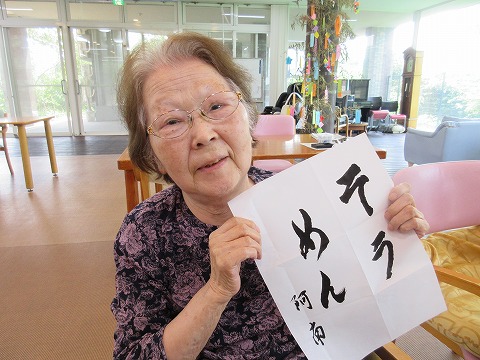 そう
めん
阿南